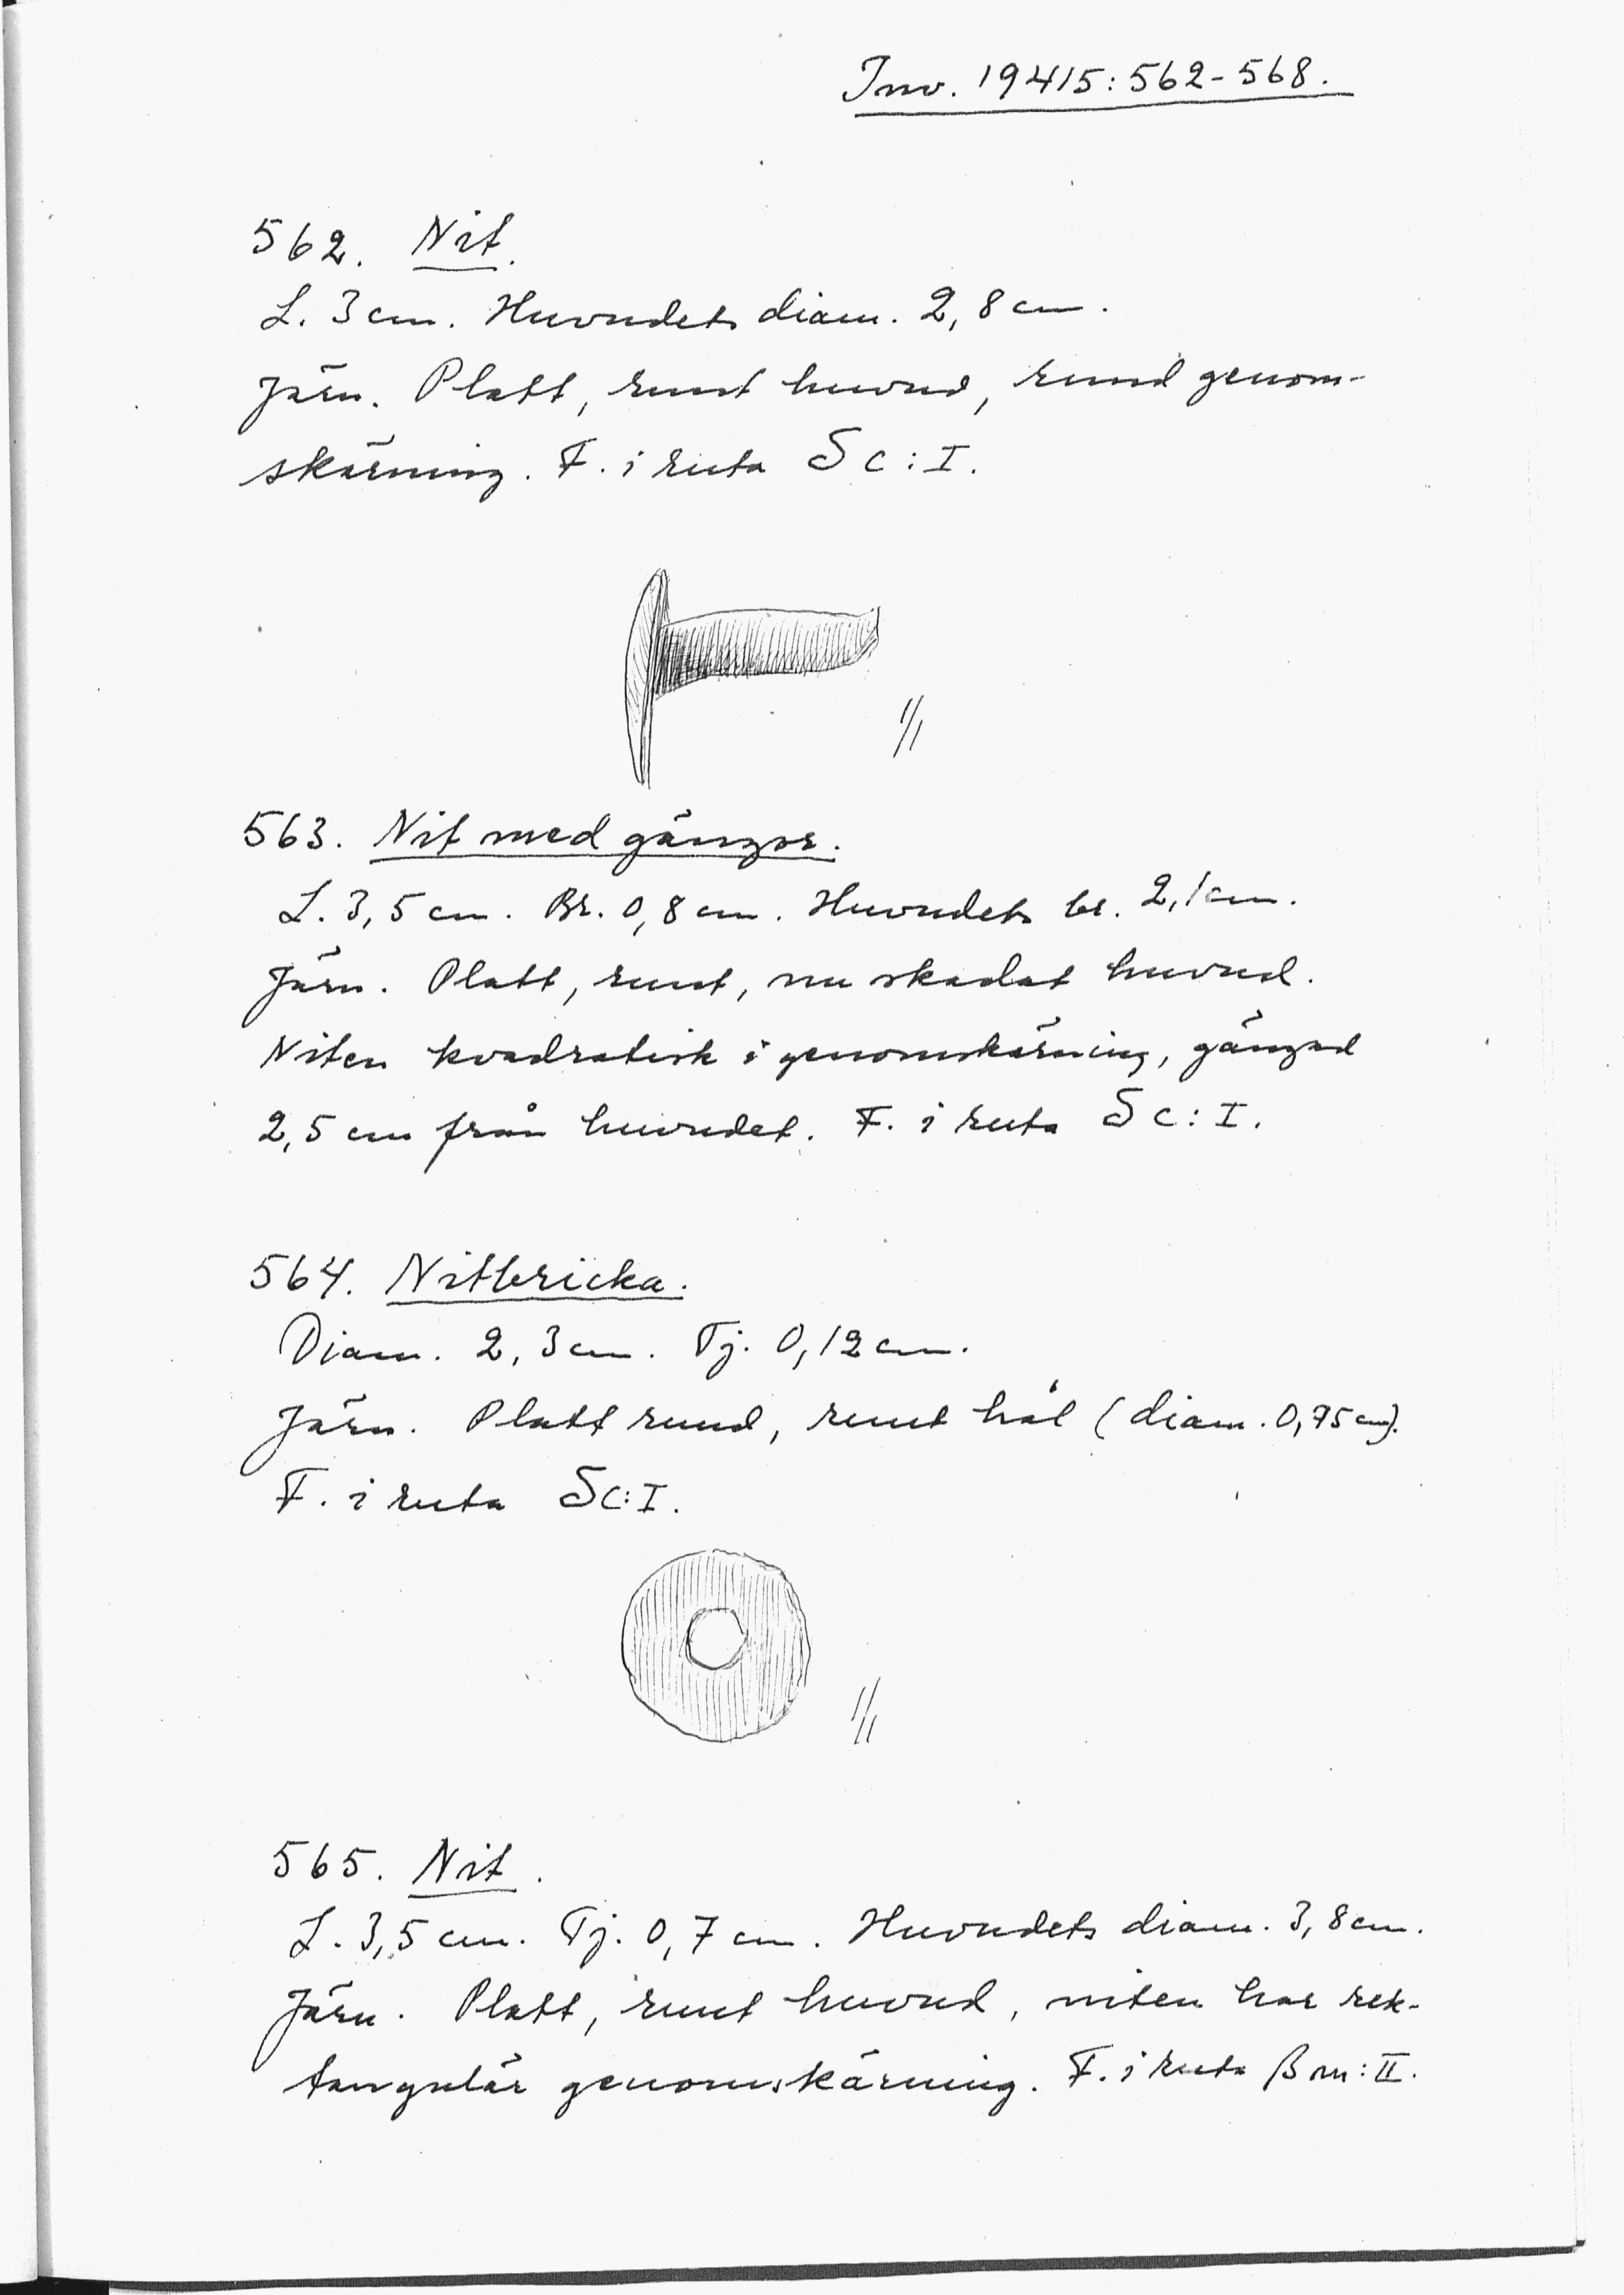 Inv. 19415:562-568.
562. Nit.
L. 3 cm. Huvudets diam. 2,8 cm.
Järn. Platt, runt huvud, rund genom-
skärning. F. i ruta δ c: I.
1/1
563. Nit med gängor.
L. 3,5 cm. Br. 0,8 cm. Huvudets br. 2,1 cm.
Järn. Platt, runt, nu skadat huvud.
Niten kvadratisk i genomskärning, gängad
2,5 cm från huvudet. F. i ruta δ c: I.
564. Nitbricka.
Diam. 2,3 cm. Tj. 0,12 cm.
Järn. Platt rund, runt hål (diam. 0,75 cm).
F. i ruta δ c: I.
1/1
565. Nit.
L. 3,5 cm. Tj. 0,7 cm. Huvudets diam. 3,8 cm.
Järn. Platt, runt huvud, niten har rek-
tangulär genomskärning. F. i ruta β m: II.